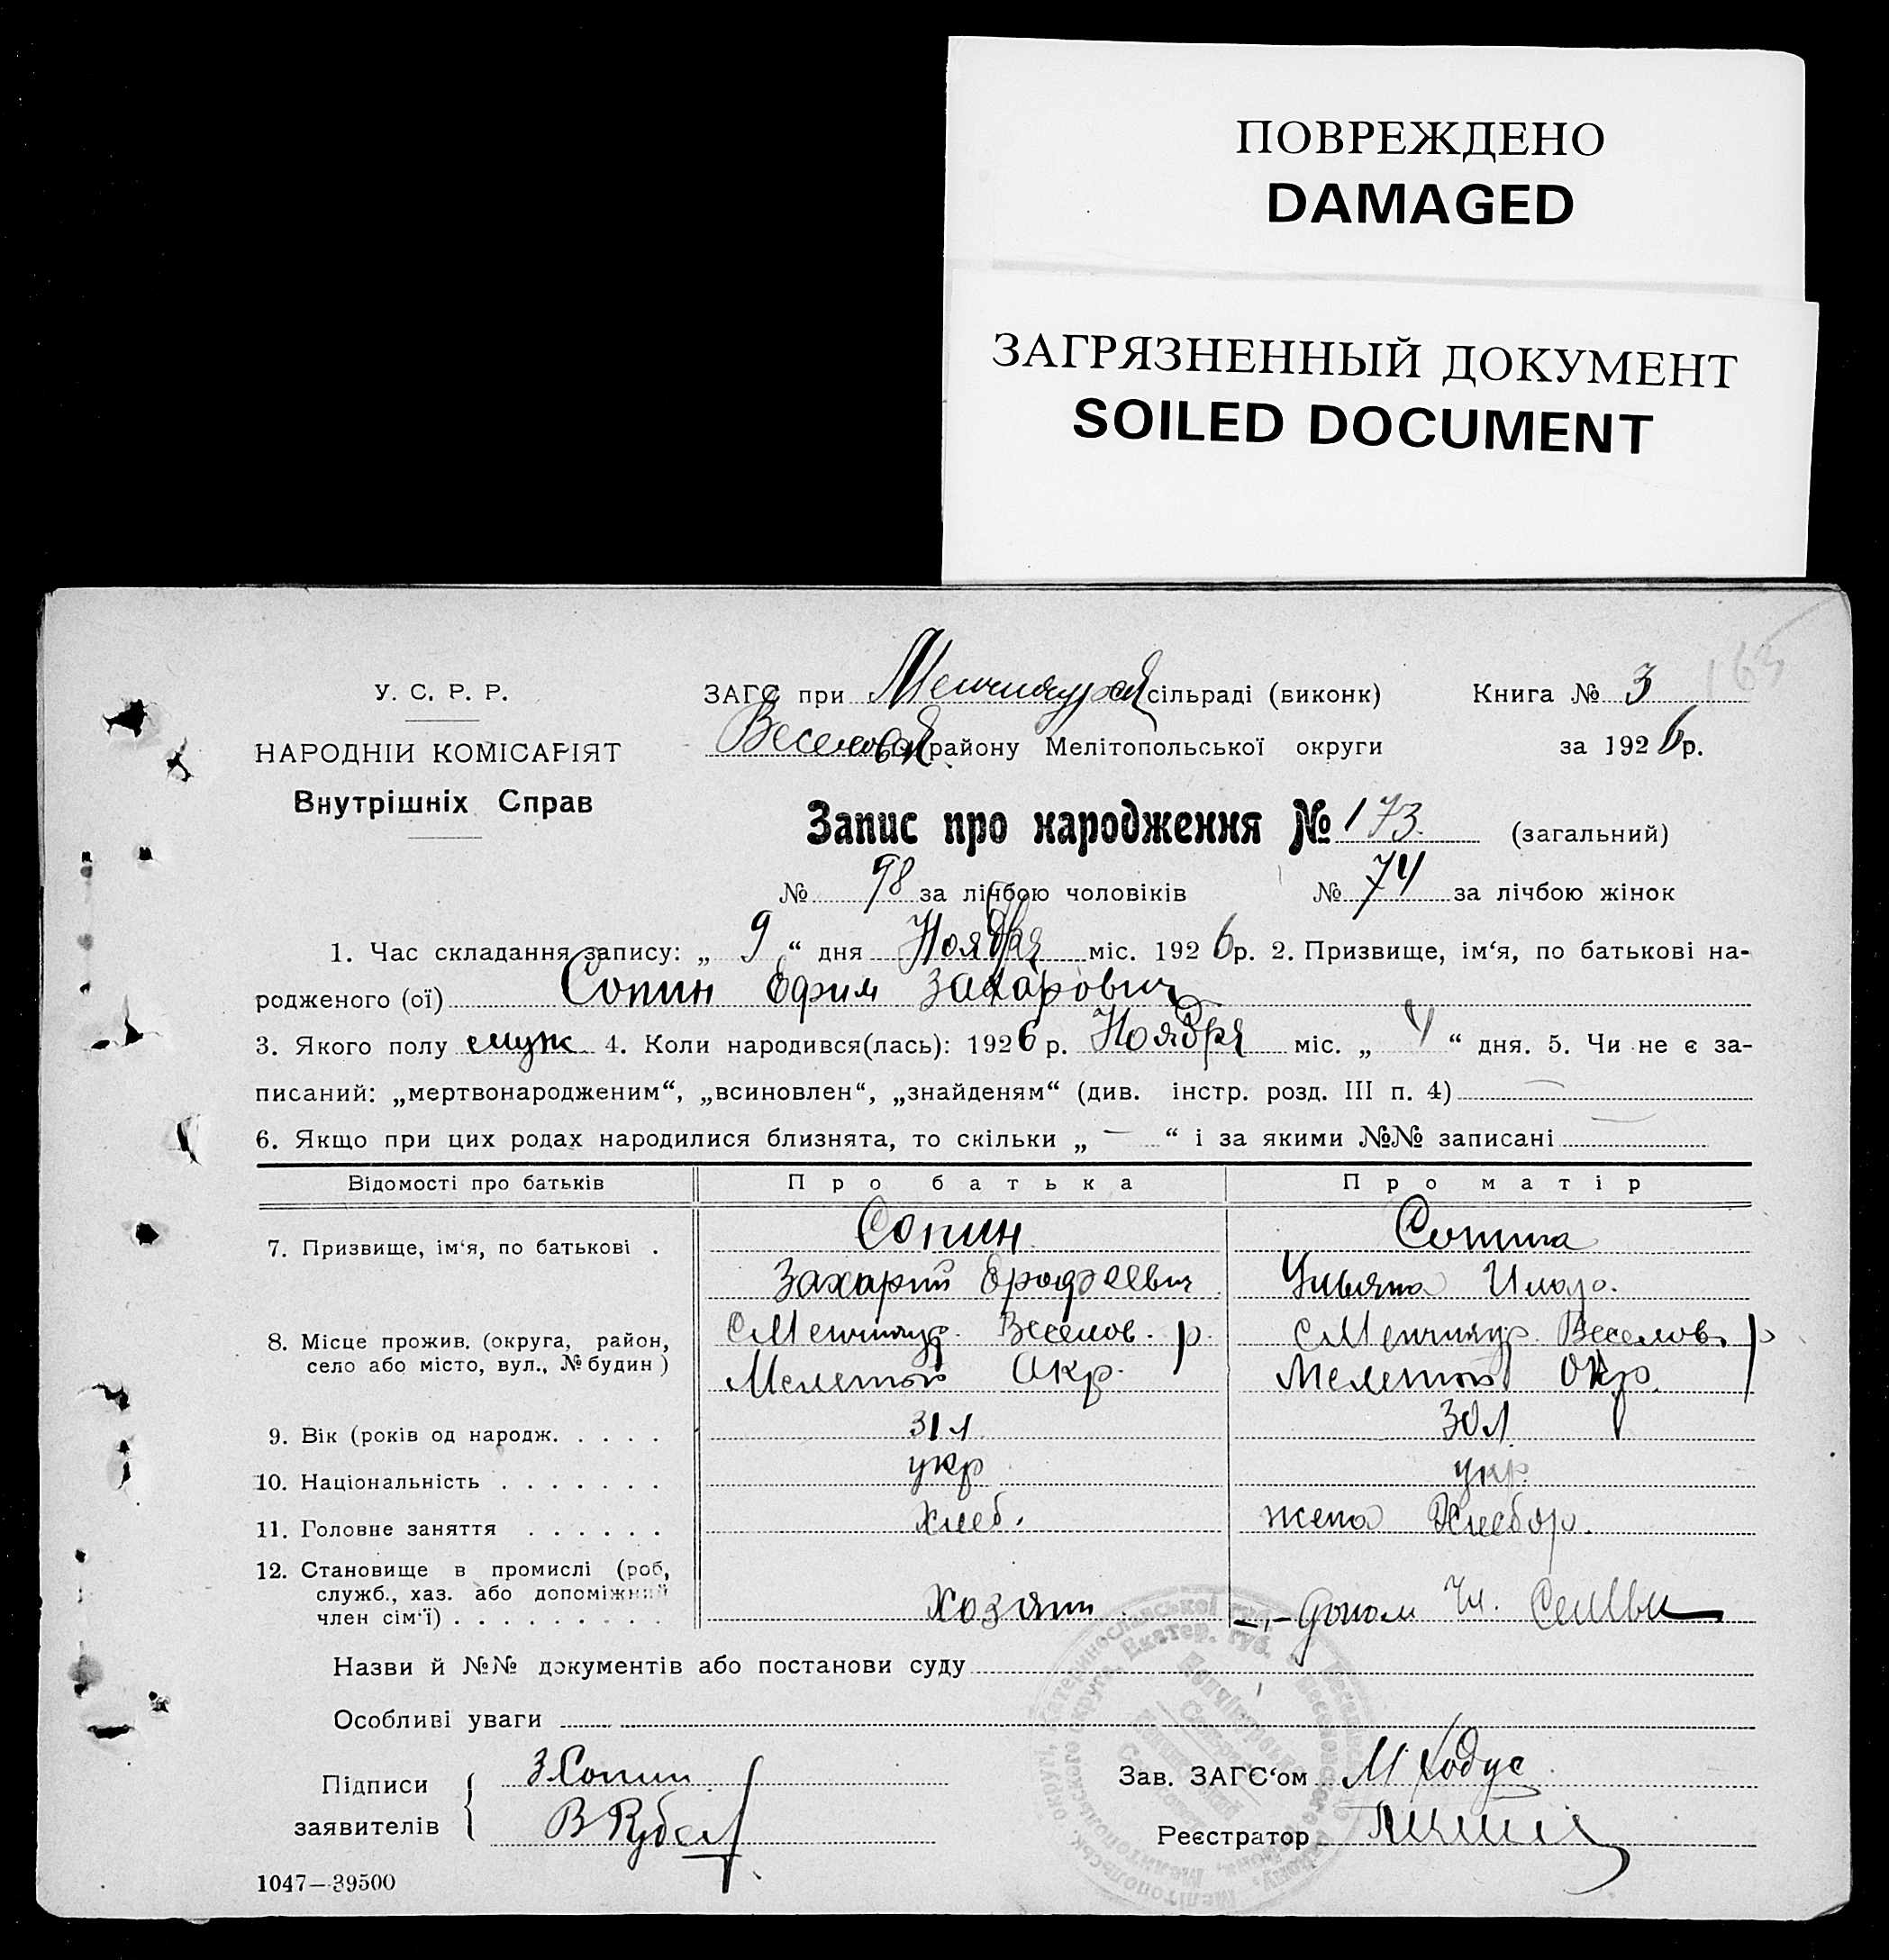 ПОВРЕЖДЕНО
DAMAGED
ЗАГРЯЗНЕННЫЙ ДОКУМЕНТ
SOILED DOCUMENT
165
У. С. Р. Р.
ЗАГС при сільраді (виконк) Книга № 3
НАРОДНІЙ КОМІСАРІЯТ
району Мелітопольської округи за 1926 р.
Внутрішніх Справ
Запис про народження № 173. (загальний)
№ 98 за лічбою чоловіків № 74 за лічбою жінок
1. Час складання запису: „ 9 “ дня Ноября міс. 1926 р. 2. Призвище, ім‘я, по батькові на-
родженого (ої) Сопин Ефим Захарович
3. Якого полу муж 4. Коли народився(лась): 1926 р. Ноября міс. „ 4 “ дня. 5. Чи не є за-
писаний: „мертвонародженим“, „всиновлен“, „знайденям“ (див. інстр. розд. III п. 4) —
6. Якщо при цих родах народилися близнята, то скільки „ — “ і за якими №№ записані —
Відомості про батьків Про батька Про матір
7. Призвище, ім‘я, по батькові . Сопин Сопина
Захарий Ерофеевич Ульяна
8. Місце прожив. (округа, район, Веселов. р. Веселов. р
село або місто, вул., № будин ) Окр. Окр.
9. Вік (років од народж. . . . . 31 л 30 л
10. Національність . . . . . . . укр укр
11. Головне заняття . . . . . . хлеб. жена Хлебор.
12. Становище в промислі (роб,
служб., хаз. або допоміжний
член сім‘ї) . . . . . . . . . Хозяин допом Чл. Семьи
Назви й №№ документів або постанови суду
Особливі уваги
Підписи З Сопин Зав. ЗАГС‘ом М Ходус
заявителів Реєстратор
1047—39500